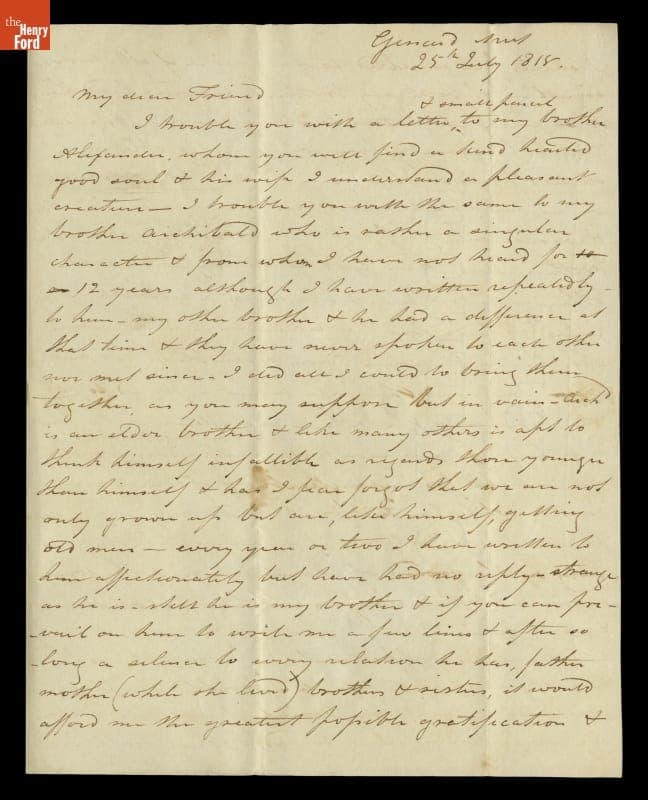 the
Henry
Ford
25th July 1815.
My dear Friend
& small parcel
I trouble you with a letter ^ to my brother
Alexander, whom you will find a kind hearted
good soul & his wife I understand a pleasant
creature – I trouble you with the same to my
brother Archibald who is rather a singular
character & from whom I have not heard for 10
or 12 years although I have written repeatedly
to him – my other brother & he had a difference at
that time & they have never spoken to each other
nor met since – I did all I could to bring them
together, as you may suppose but in vain – Archd
is an elder brother & like many others is apt to
think himself infallible as regards those younger
than himself & has I fear forgot that we are not
only grown up but are, like himself, getting
old men – every year or two I have written to
him affectionately but have had no reply – strange
as he is – still he is my brother & if you can pre-
-vail on him to write me a few lines & after so
-long a silence to every relation he has, father
mother (while she lived) brothers & sisters, it would
afford me the greatest possible gratification &